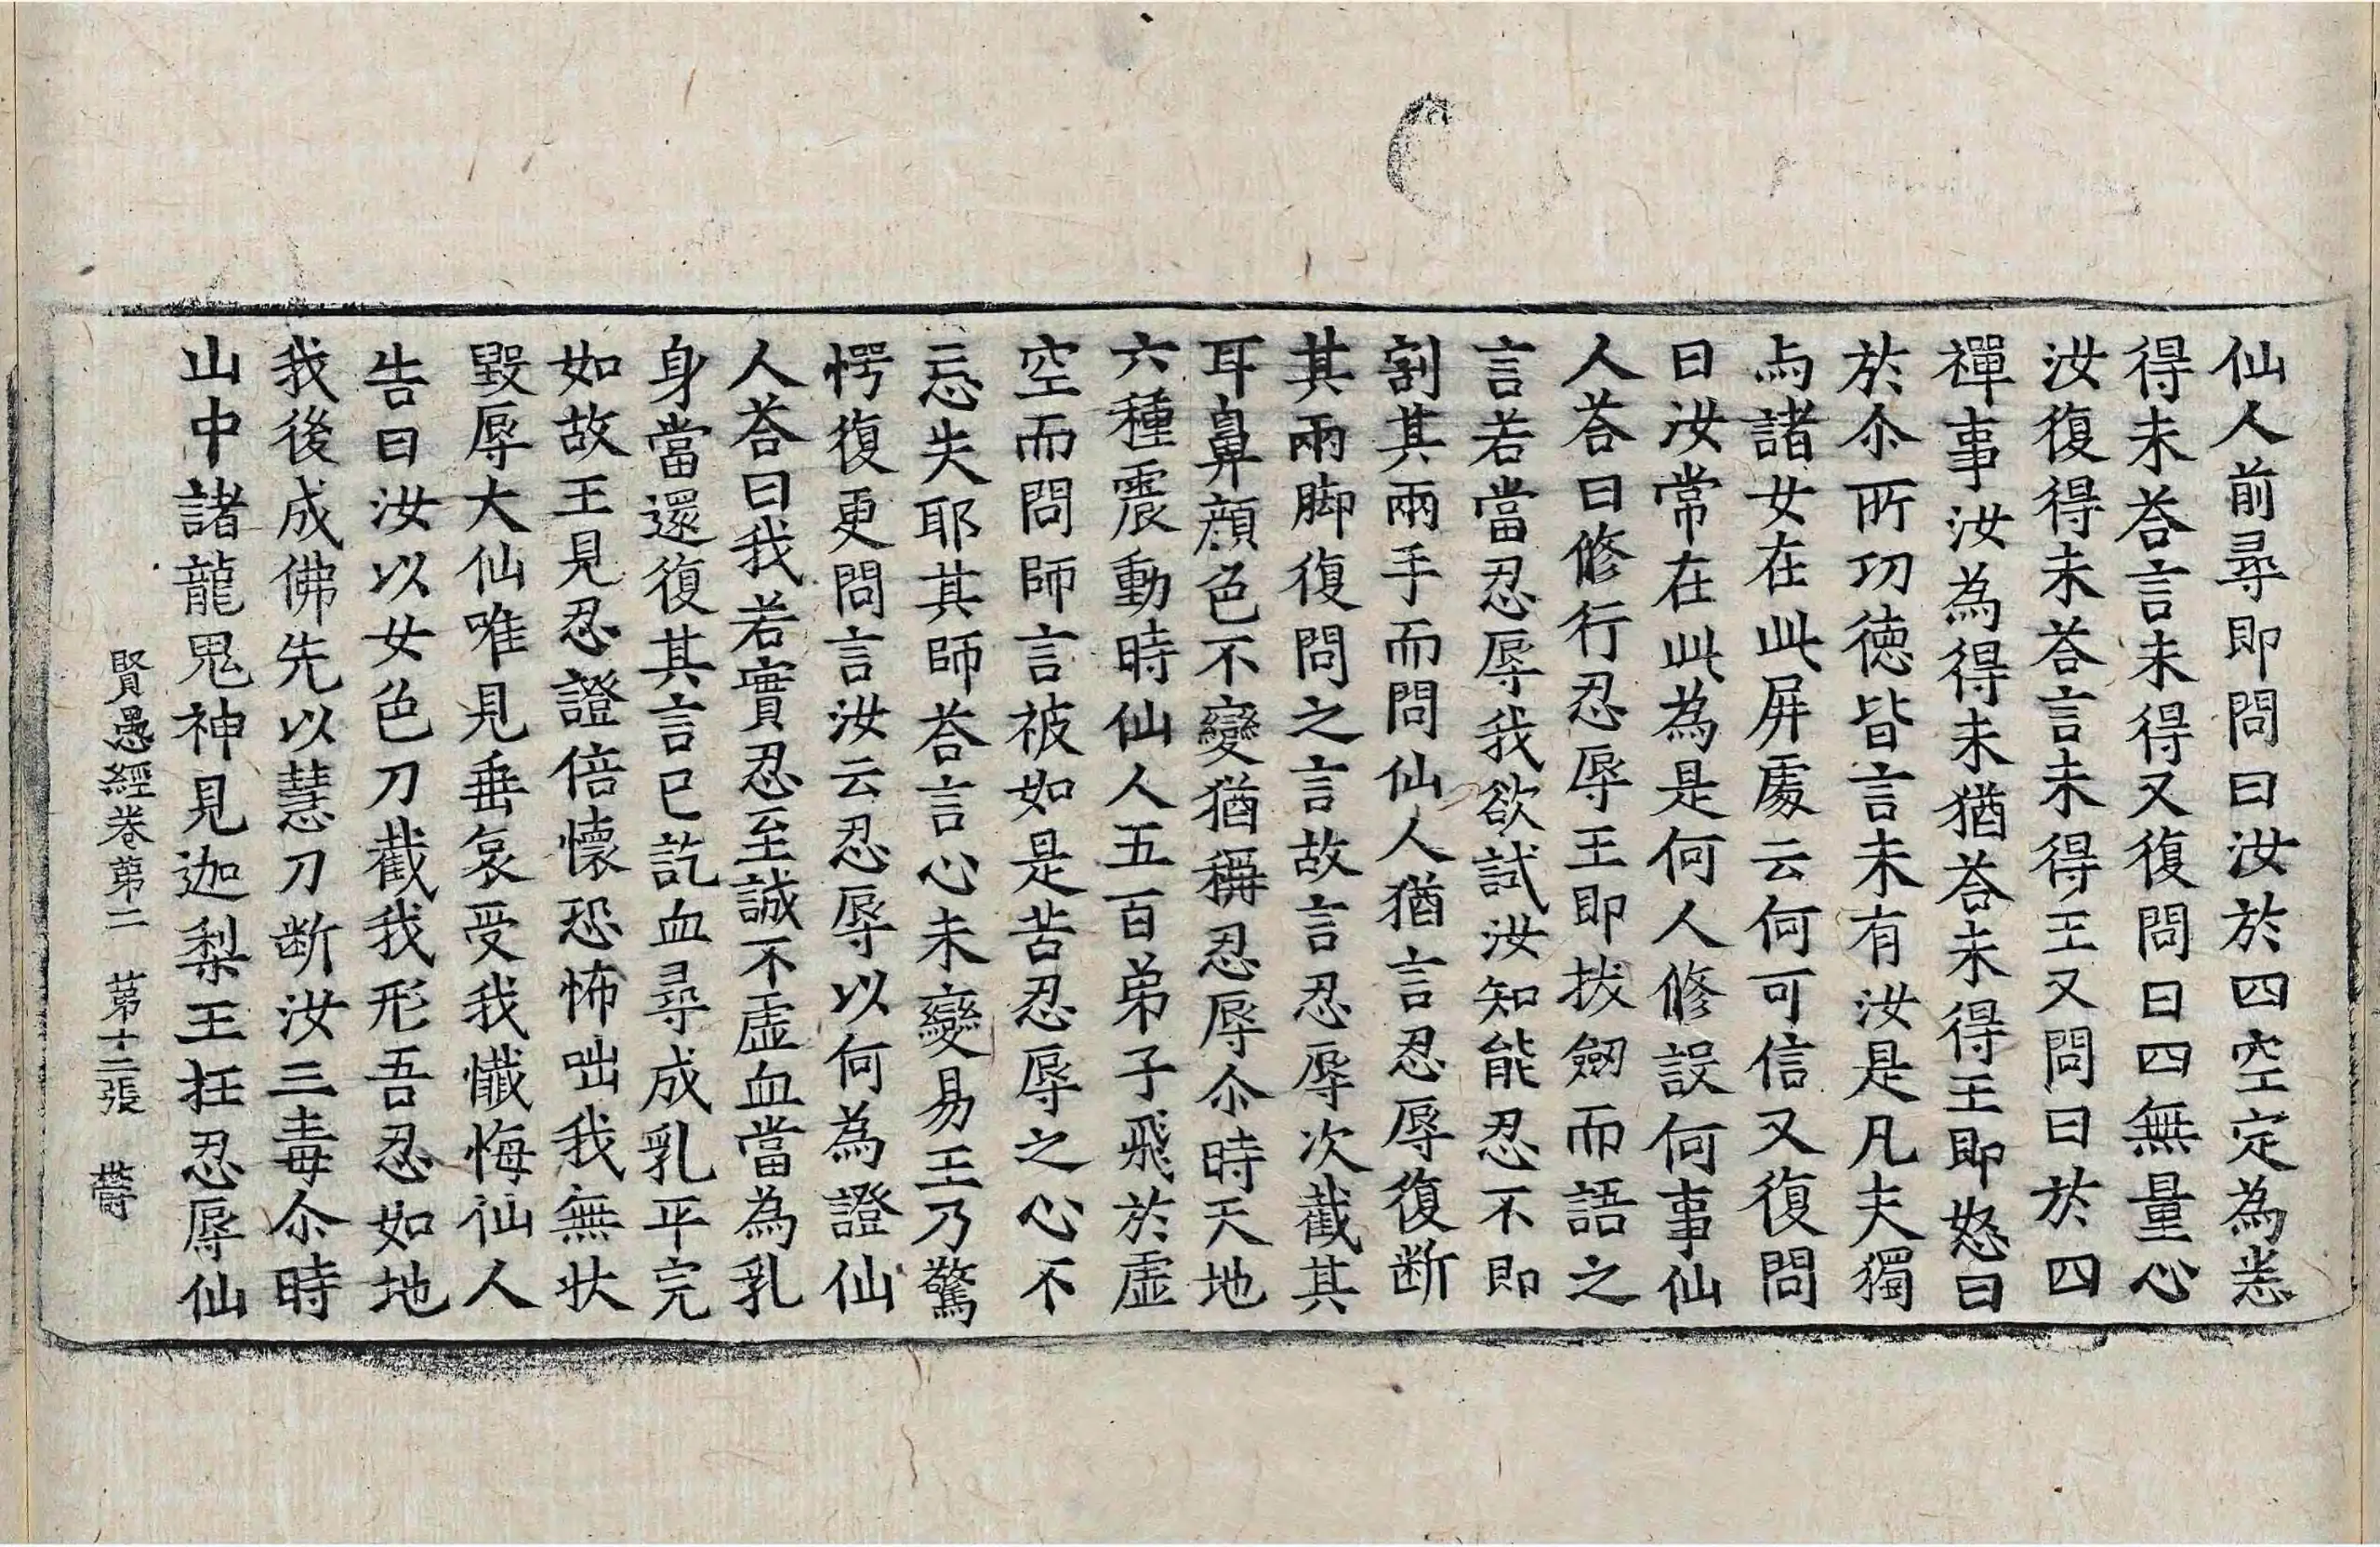 仙人前尋即問曰汝於四空定為悉
得未荅言未得又復問曰四無量心
汝復得未荅言未得王又問曰於四
禪事汝為得未猶荅未得王即怒曰
於尒所功徳皆言未有汝是凡夫獨
与諸女在此屏處云何可信又復問
曰汝常在此為是何人修設何事仙
人荅曰修行忍辱王即拔劒而語之
言若當忍辱我欲試汝知能忍不即
割其兩手而問仙人猶言忍辱復断
其兩脚復問之言故言忍辱次截其
耳鼻顔色不變猶稱忍辱尒時天地
六種震動時仙人五百弟子飛於虛
空而問師言被如是苦忍辱之心不
忘失耶其師荅言心未變易王乃驚
愕復更問言汝云忍辱以何為證仙
人荅曰我若實忍至誠不虛血當為乳
身當還復其言已訖血尋成乳平完
如故王見忍證倍懷恐怖咄我無状
毀辱大仙唯見垂哀受我懺悔仙人
告曰汝以女色刀截我形吾忍如地
我後成佛先以慧刀断汝三毒尒時
山中諸龍鬼神見迦梨王抂忍辱仙
賢愚經卷第二 第十二張